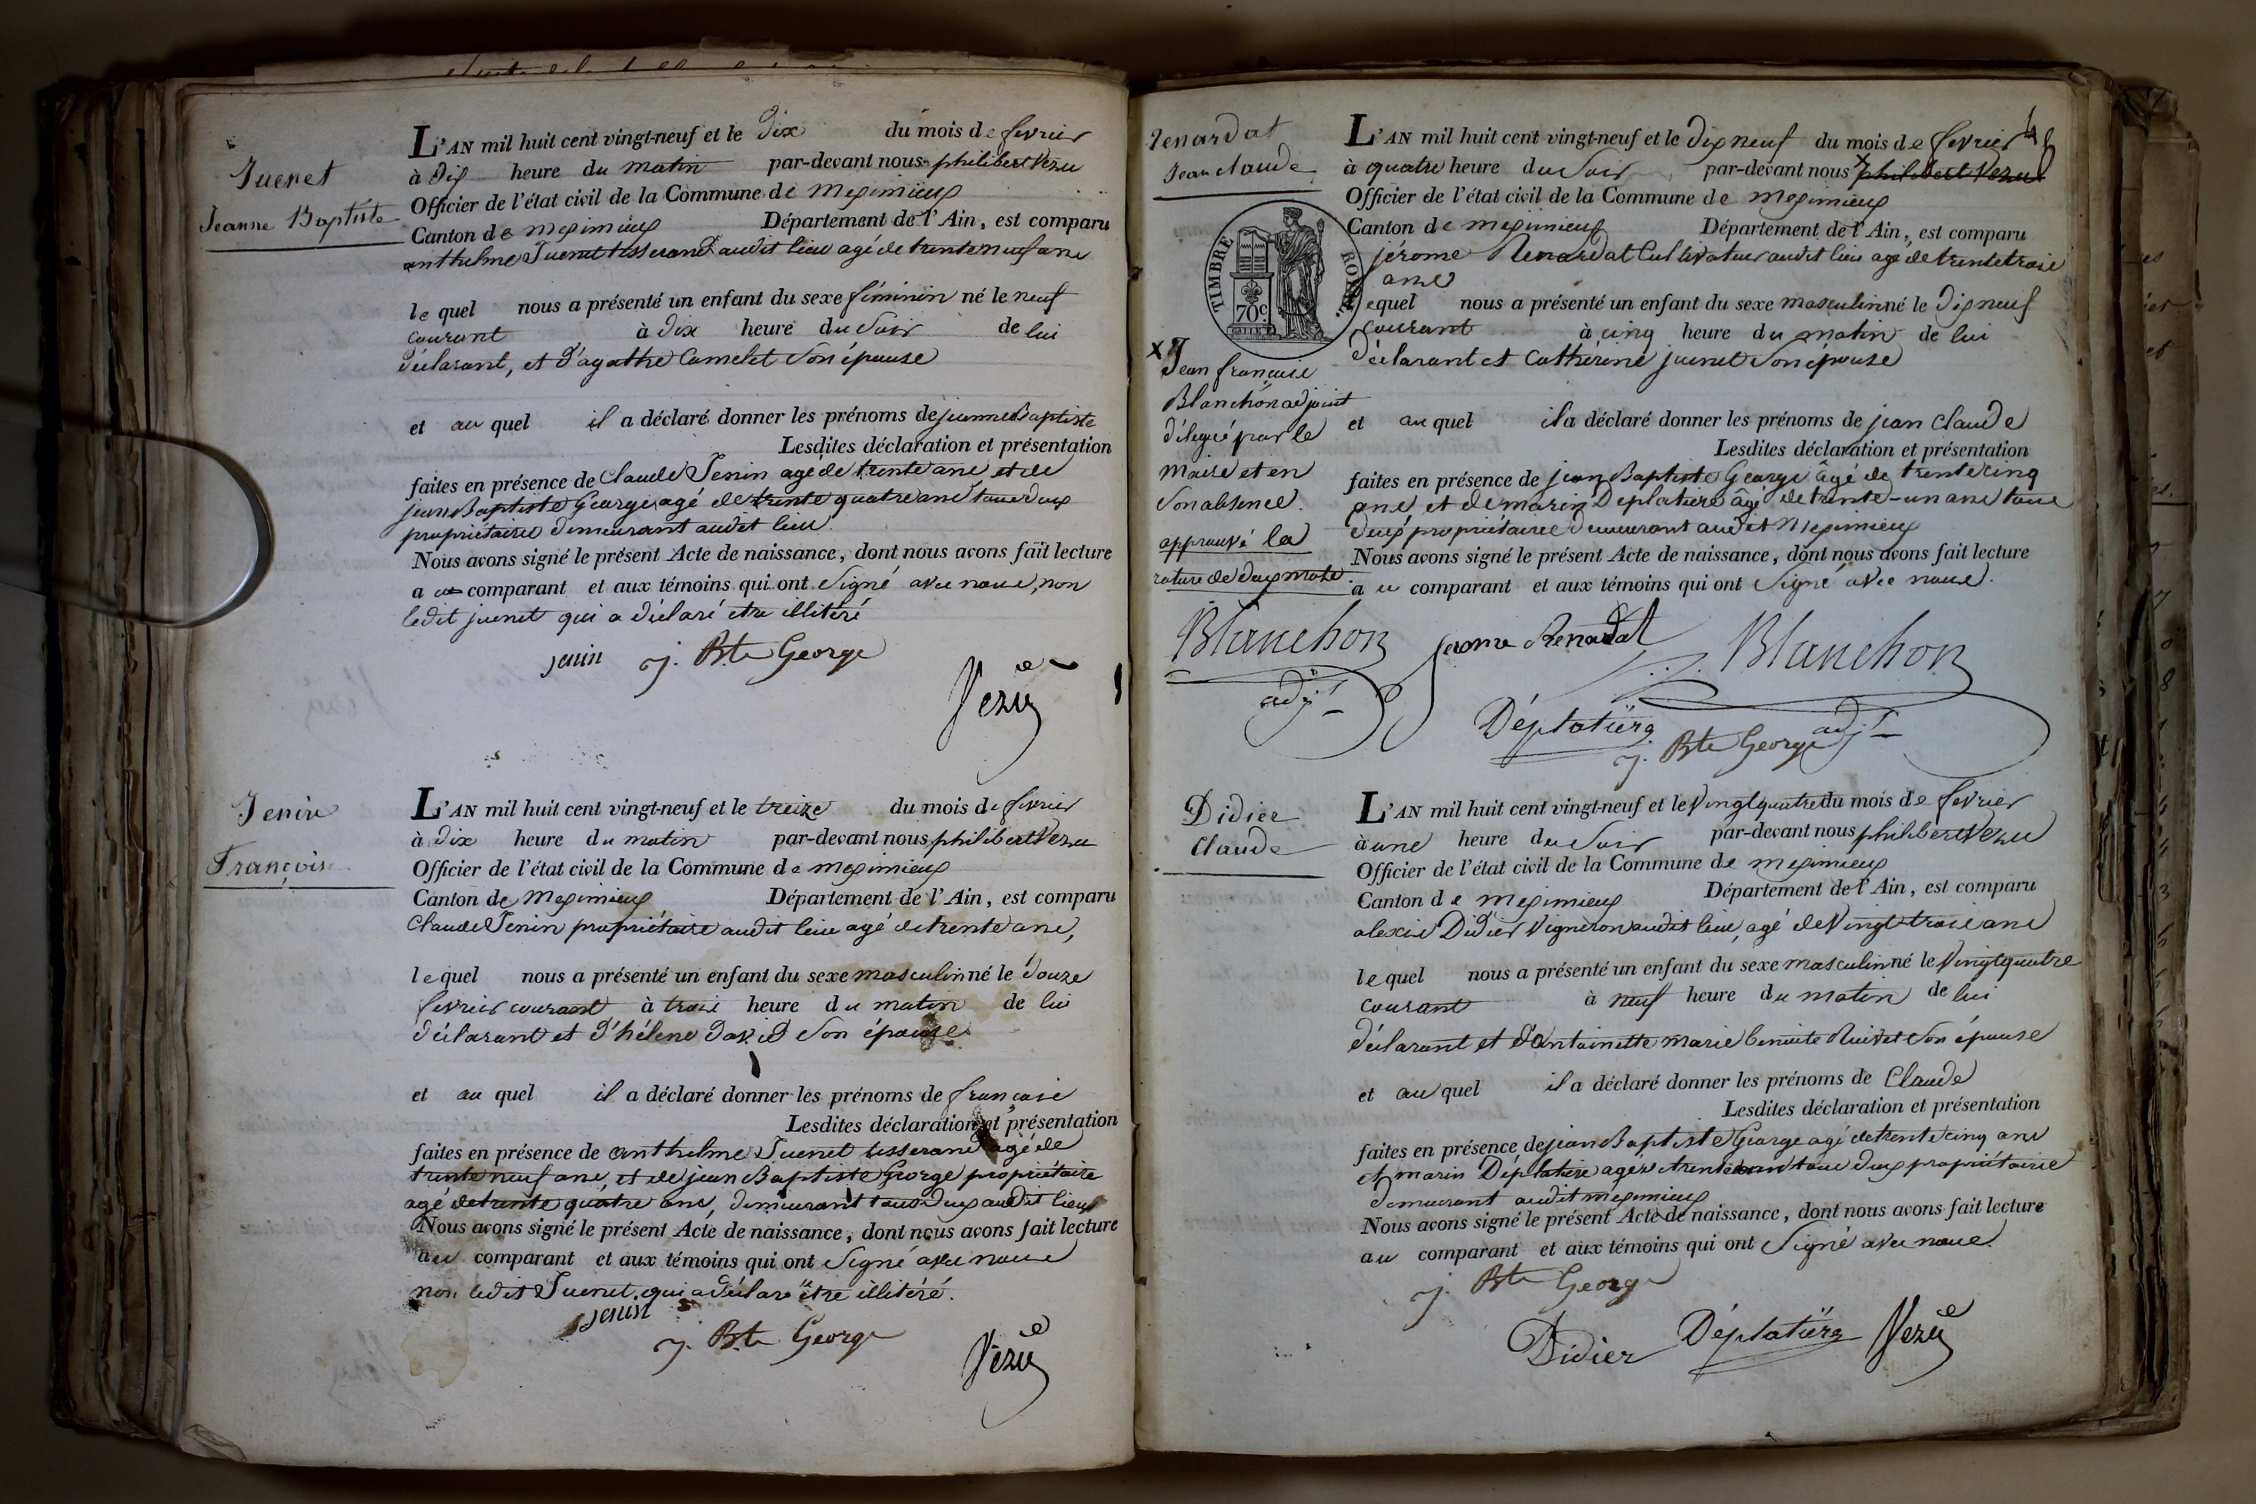 Juenet
Jeanne Baptiste
L'AN mil huit cent vingt-neuf et le Dix du mois de fevrier
à Dix heure du matin par-devant nous philibert Vezu
Officier de l'état civil de la Commune de meximieux
Canton de meximieux Département de l'Ain, est comparu
anthelme Juenet tisserand audit lieu agé de trente neuf ans
lequel nous a présenté un enfant du sexe féminin né le neuf
courant à dix heure du soir de lui
déclarant, et d'agathe Camelet son épouse
et au quel il a déclaré donner les prénoms de jeanne Baptiste
Lesdites déclaration et présentation
faites en présence de Claude Jenin agé de trente ans et de
jean Baptiste George agé de trente quatre ans tous deux
propriétaires demeurant audit lieu
Nous avons signé le présent Acte de naissance, dont nous avons fait lecture
a comparant et aux témoins qui ont signé avec nous, non
ledit juenet qui a déclaré etre illitéré
jenin J. Bte George
Vezu
Jenin
François
L'AN mil huit cent vingt-neuf et le treize du mois de fevrier
à dix heure du matin par-devant nous philibert Vezu
Officier de l'état civil de la Commune de meximieux
Canton de Meximieux Département de l'Ain, est comparu
Claude Jenin propriétaire audit lieu agé de trente ans,
lequel nous a présenté un enfant du sexe masculin né le douze
fevrier courant à trois heure du matin de lui
déclarant et d'hélene David son épouse
et au quel il a déclaré donner les prénoms de françois
Lesdites déclaration et présentation
faites en présence de anthelme Juenet tisserand agé de
trente neuf ans, et de jean Baptiste George propriétaire
agé de trente quatre ans, demeurant tous deux audit lieu
Nous avons signé le présent Acte de naissance, dont nous avons fait lecture
au comparant et aux témoins qui ont signé avec nous
non ledit Juenet, qui a déclaré être illitéré.
jenin
J. Bte George
Vezu
Renardat
Jean claude
L'AN mil huit cent vingt-neuf et le dix neuf du mois de fevrier
à quatre heure du soir par-devant nous x philibert Vezu
Officier de l'état civil de la Commune de meximieux
Canton de meximieux Département de l'Ain, est comparu
jérome Renardat Cultivateur audit lieu agé de trente trois
ans
lequel nous a présenté un enfant du sexe masculin né le dix neuf
courant à cinq heure du matin de lui
déclarant et Cathérine juenet son épouse
et au quel il a déclaré donner les prénoms de jean Claude
Lesdites déclaration et présentation
faites en présence de jean Baptiste George âgé de trente cinq
ans et de marin Déplatière âgé de trente-un ans tous
deux propriétaires demeurant audit Meximieux
Nous avons signé le présent Acte de naissance, dont nous avons fait lecture
a u comparant et aux témoins qui ont signé avec nous.
TIMBRE ROYAL
70c
x Jean françois
Blanchon adjoint
délégué par le
maire et en
son absence.
approuvé la
rature de deux mots.
Blanchon
adjt
Jerome Renardat
Blanchon
adjt
Déplatière
J. Bte George
Didier
Claude
L'AN mil huit cent vingt-neuf et le Vingt quatre du mois de fevrier
à une heure du soir par-devant nous philibert Vezu
Officier de l'état civil de la Commune de meximieux
Canton de meximieux Département de l'Ain, est comparu
alexis Didier Vigneron audit lieu, agé de Vingt trois ans
lequel nous a présenté un enfant du sexe masculin né le Vingt quatre
courant à neuf heure du matin de lui
déclarant et d'antoinette marie benoite son épouse
et au quel il a déclaré donner les prénoms de Claude
Lesdites déclaration et présentation
faites en présence de jean Baptiste George agé de trente cinq ans
et marin Déplatière agé de trente un ans tous deux propriétaires
demeurant audit meximieux
Nous avons signé le présent Acte de naissance, dont nous avons fait lecture
au comparant et aux témoins qui ont signé avec nous.
J. Bte George
Didier Déplatière Vezu